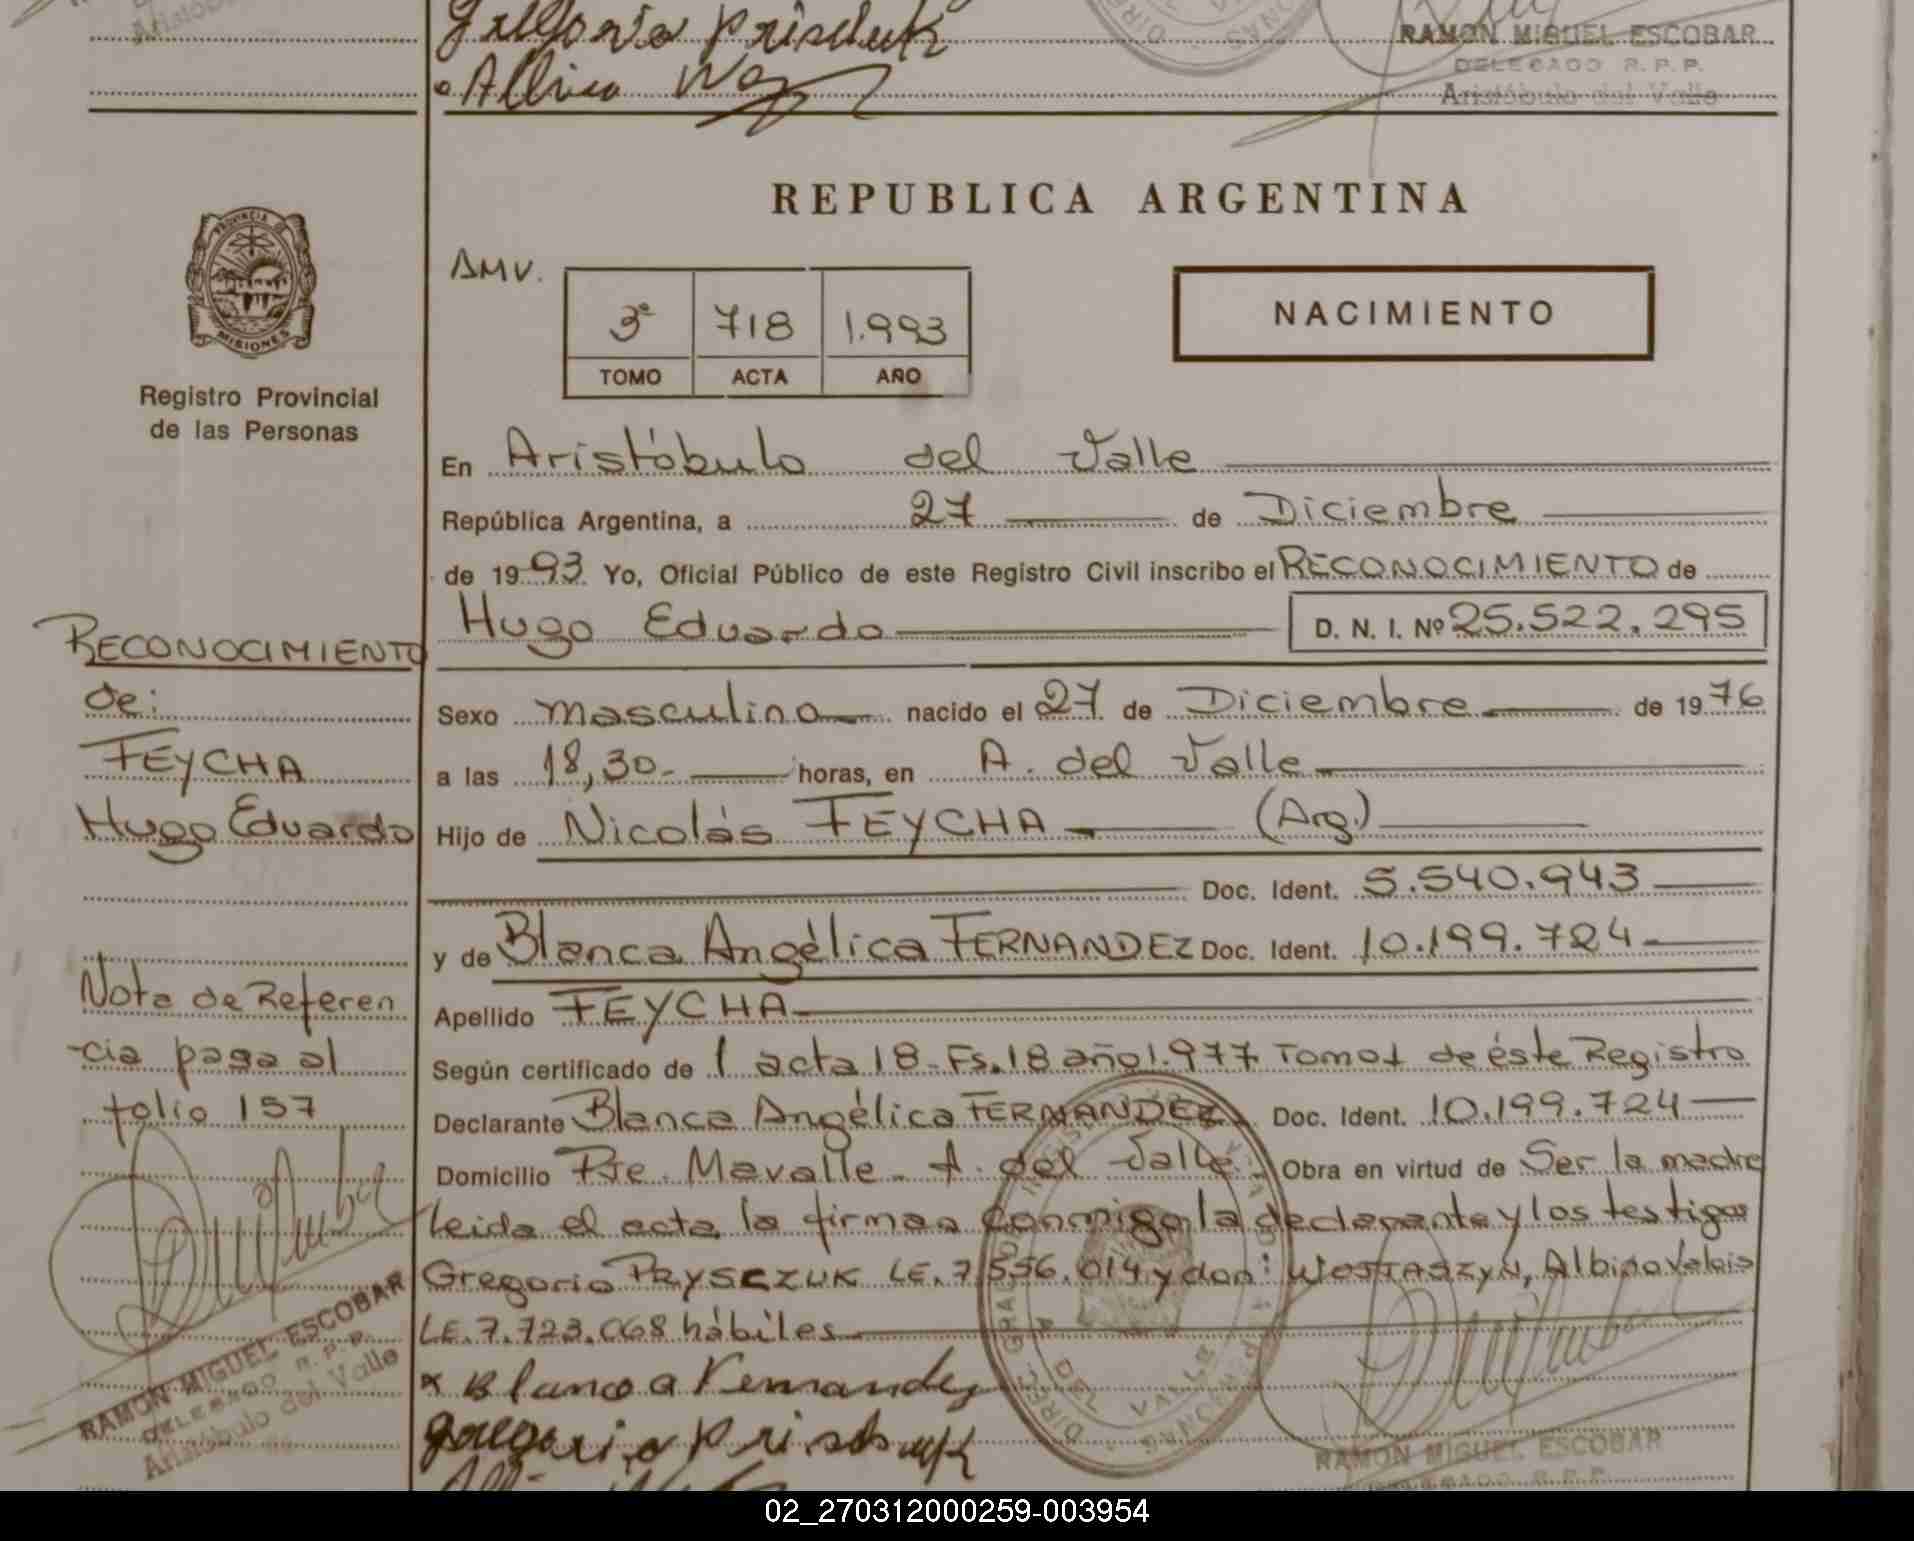 Gregorio Prischuk
RAMON MIGUEL ESCOBAR
DELEGADO R.P.P.
Albino
Aristóbulo del Valle
REPUBLICA ARGENTINA
PROVINCIA DE
MISIONES
Registro Provincial
de las Personas
AMV.
3º 718 1.993
TOMO ACTA AÑO
NACIMIENTO
En Aristóbulo del Valle
República Argentina, a 27 de Diciembre
de 1993 Yo, Oficial Público de este Registro Civil inscribo el RECONOCIMIENTO de
Hugo Eduardo D. N. I. Nº 25.522.295
RECONOCIMIENTO
de:
FEYCHA
Hugo Eduardo
Sexo masculino nacido el 27 de Diciembre de 1976
a las 18,30.- horas, en A. del Valle
Hijo de Nicolás FEYCHA (Arg.)
Doc. Ident. 5.540.943
y de Blanca Angélica FERNANDEZ Doc. Ident. 10.199.724
Apellido FEYCHA
Según certificado de 1 acta 18-Fs.18 año 1.977 Tomo 1 de éste Registro
Declarante Blanca Angélica FERNANDEZ Doc. Ident. 10.199.724
Domicilio Pje. Mavalle - A. del Valle Obra en virtud de Ser la madre
leida el acta la firman conmigo la declarante y los testigos
Gregorio PRYSCZUK LE.7.556.014 y don: WOJTASZYN, Albino Valois
LE.7.723.068 hábiles
Nota de Referen
-cia pasa al
folio 157
RAMON MIGUEL ESCOBAR
DELEGADO R.P.P.
Aristóbulo del Valle
x Blanca A Fernandez
Gregorio Prischuk
DEL VALLE
RAMON MIGUEL ESCOBAR
DELEGADO R.P.P.
02_270312000259-003954